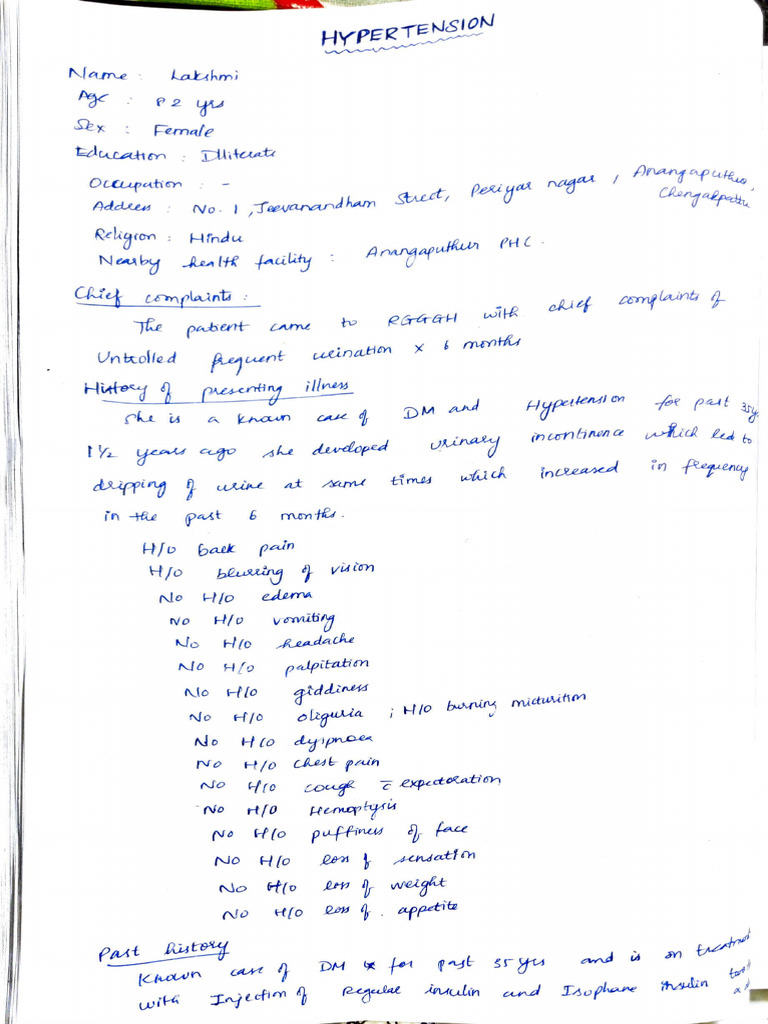 HYPERTENSION
Name : Lakshmi
Age : 82 yrs
Sex : Female
Education : Illiterate
Occupation : -
Address : No. 1, Jeevanandham Street, Periyar nagar, Anangaputhur,
Chengalpattu
Religion : Hindu
Nearby health facility : Anangaputhur PHC.
Chief complaints :
The patient came to RGGGH with chief complaints of
Untrolled frequent urination x 6 months
History of presenting illness
She is a known case of DM and Hypertension for past 35 yrs
1 1/2 years ago she developed urinary incontinence which led to
dripping of urine at same times which increased in frequency
in the past 6 months.
H/O back pain
H/O blurring of vision
No H/O edema
No H/O vomiting
No H/O headache
No H/O palpitation
No H/O giddiness
No H/O oliguria ; H/O burning micturition
No H/O dyspnoea
No H/O chest pain
No H/O cough c̄ expectoration
No H/O Hemoptysis
No H/O puffiness of face
No H/O loss of sensation
No H/O loss of weight
No H/O loss of appetite
Past history
Known case of DM for past 35 yrs and is on treatment
with Injection of Regular insulin and Isophane insulin